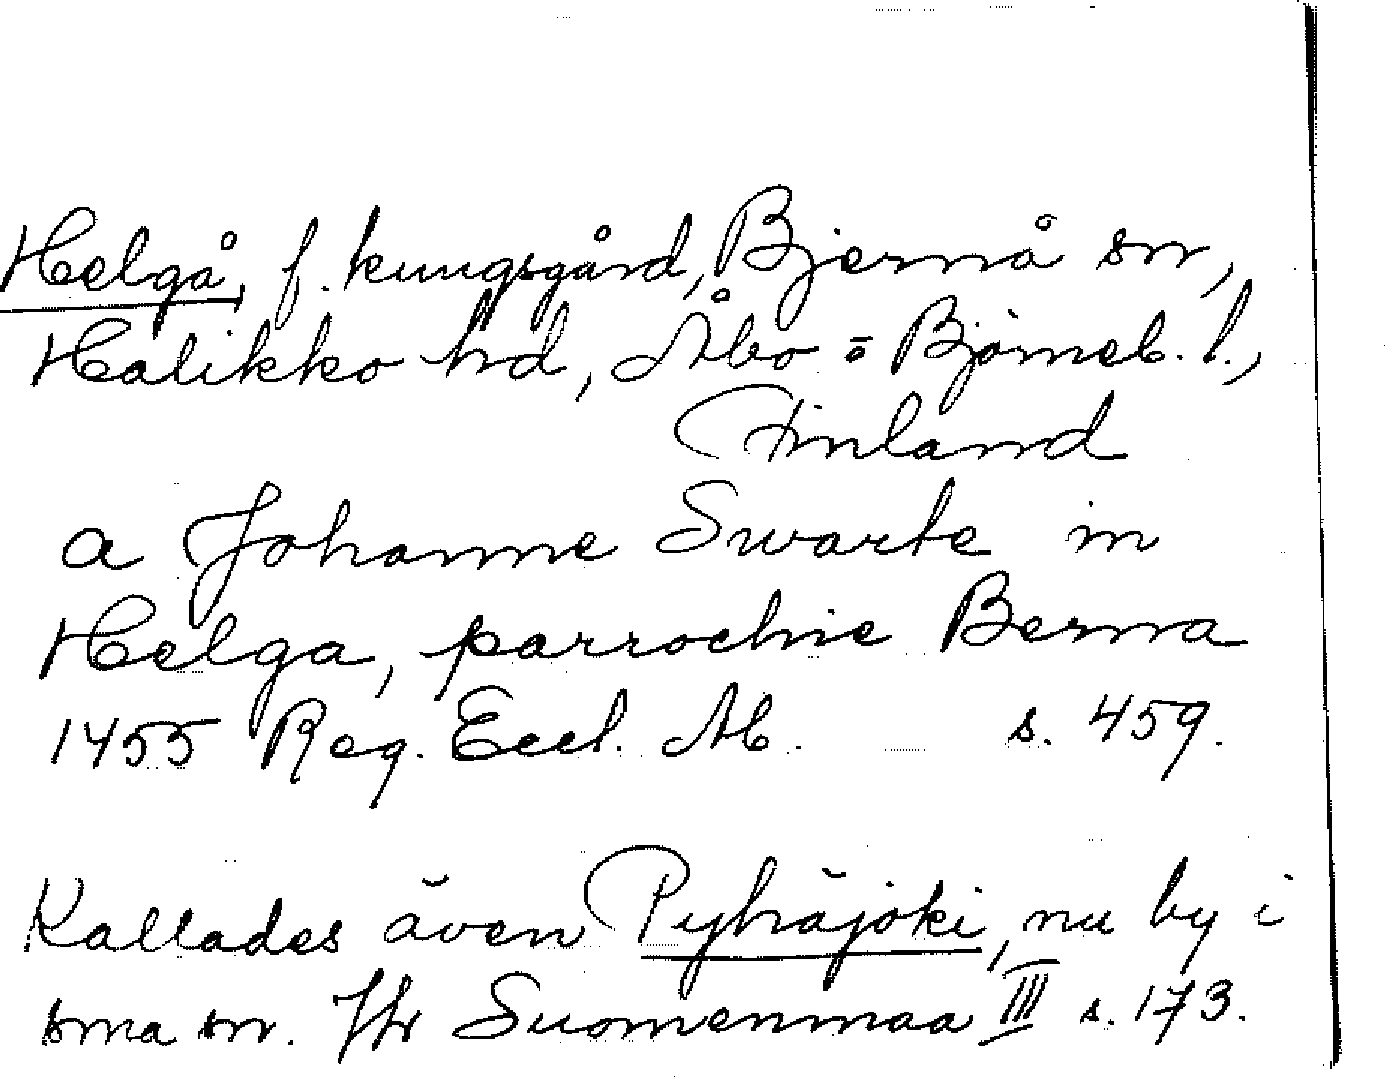 Helgå, f. kungsgård, Bjernå sn,
Halikko hd, Åbo = Björneb. l.,
Finland
a Johanne Swarte in
Helga, parrochie Berna
1455 Reg. Eccl. Ab. s. 459.
Kallades även Pyhäjoki, nu by i
sma sn. Jfr Suomenmaa III s. 173.